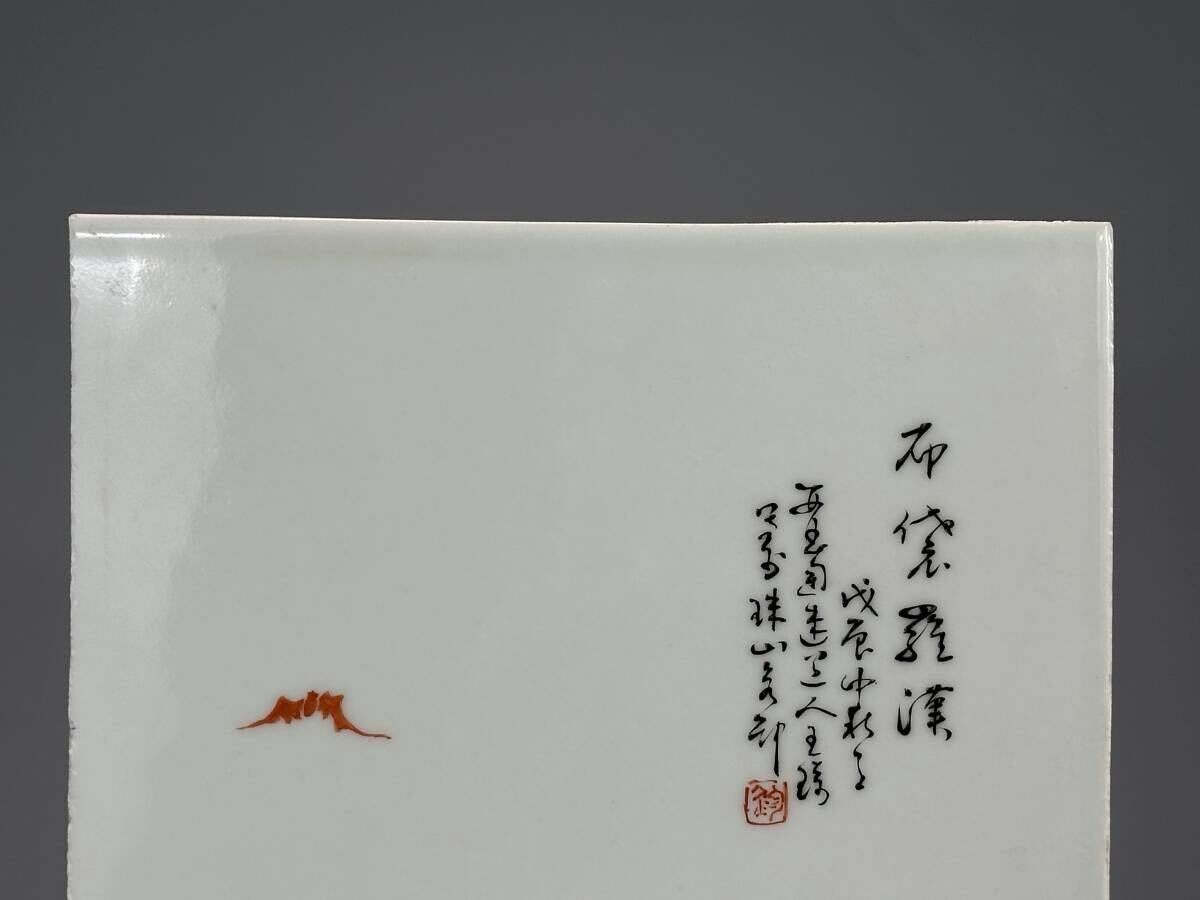 布袋羅漢
戊辰中秋月
西昌陶迷道人王琦
寫於珠山客邸